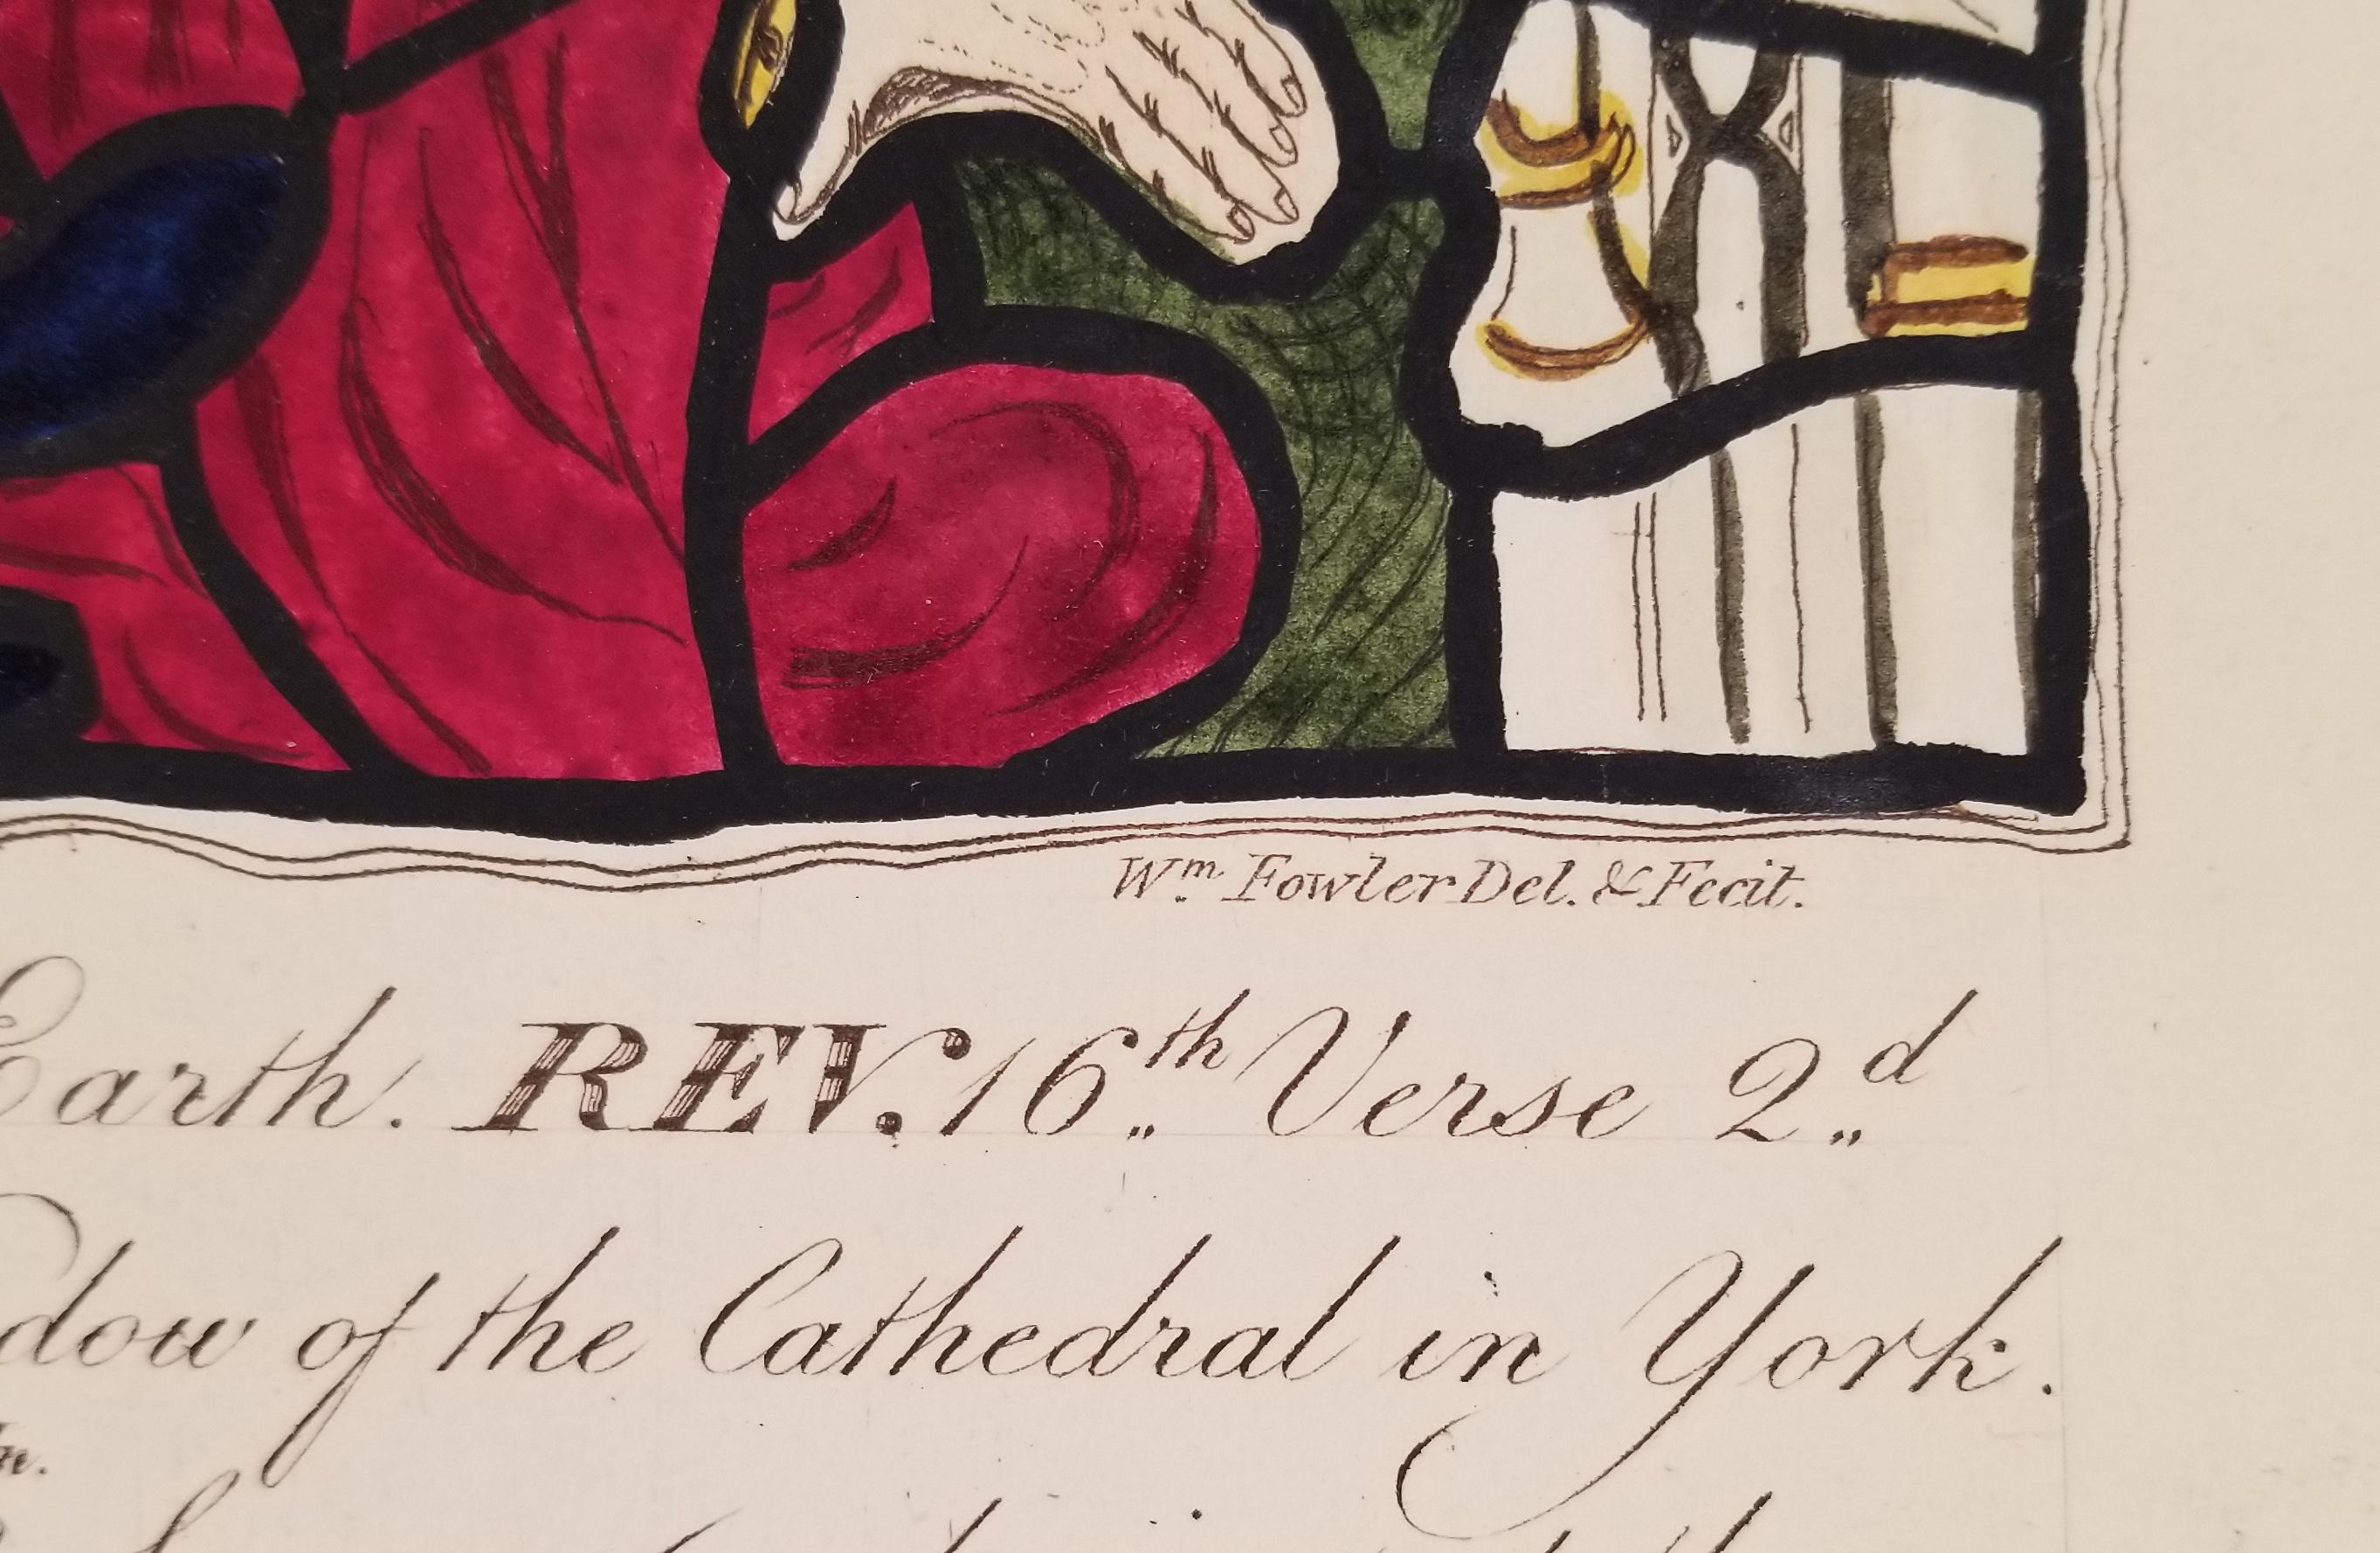 Wm Fowler Del. & Fecit.
Earth. REV. 16th Verse 2d
dow of the Cathedral in York.